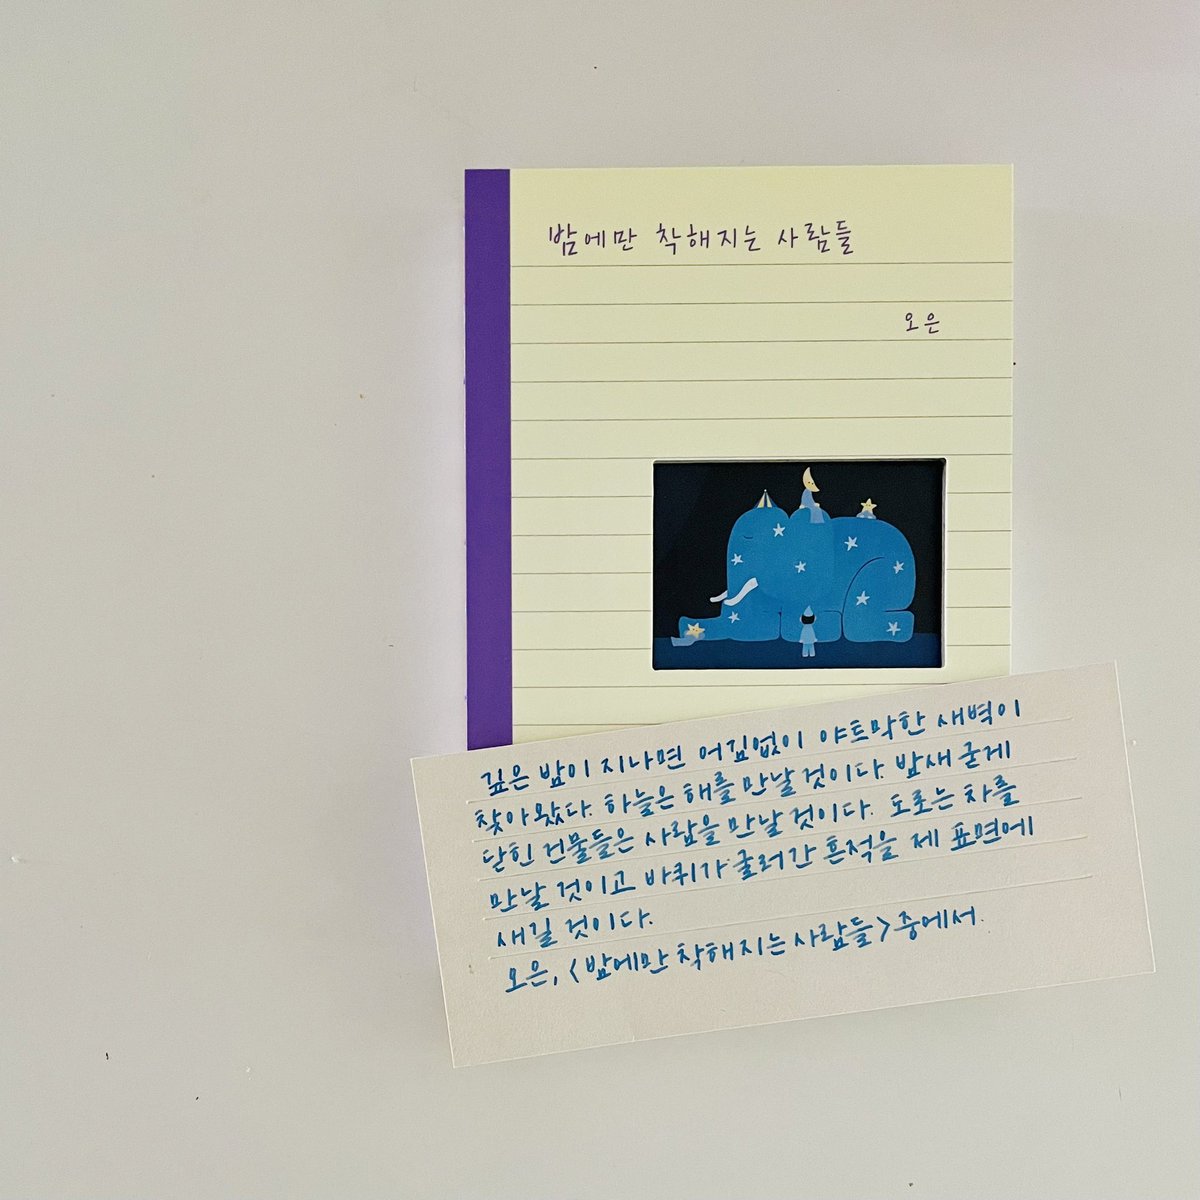 밤에만 착해지는 사람들
오은
깊은 밤이 지나면 어김없이 야트막한 새벽이
찾아왔다. 하늘은 해를 만날 것이다. 밤새 굳게
닫힌 건물들은 사람을 만날 것이다. 도로는 차를
만날 것이고 바퀴가 굴러간 흔적을 제 표면에
새길 것이다.
오은, <밤에만 착해지는 사람들> 중에서.